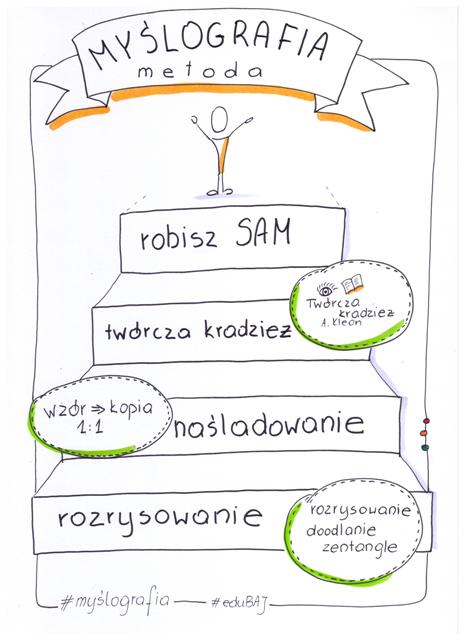 MYŚLOGRAFIA
metoda
robisz SAM
Twórcza
kradzież
A. Kleon
twórcza kradzież
wzór ⇒ kopia
1:1
naśladowanie
rozrysowanie
rozrysowanie
doodlanie
zentangle
#myślografia #eduBAJ